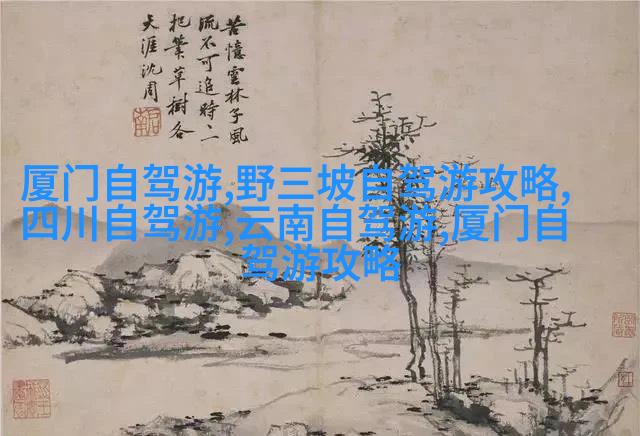 苦憶雲林子風
流不可追時二
把筆草樹各
天涯沈周
厦门自驾游,野三坡自驾游攻略,
四川自驾游,云南自驾游,厦门自
驾游攻略